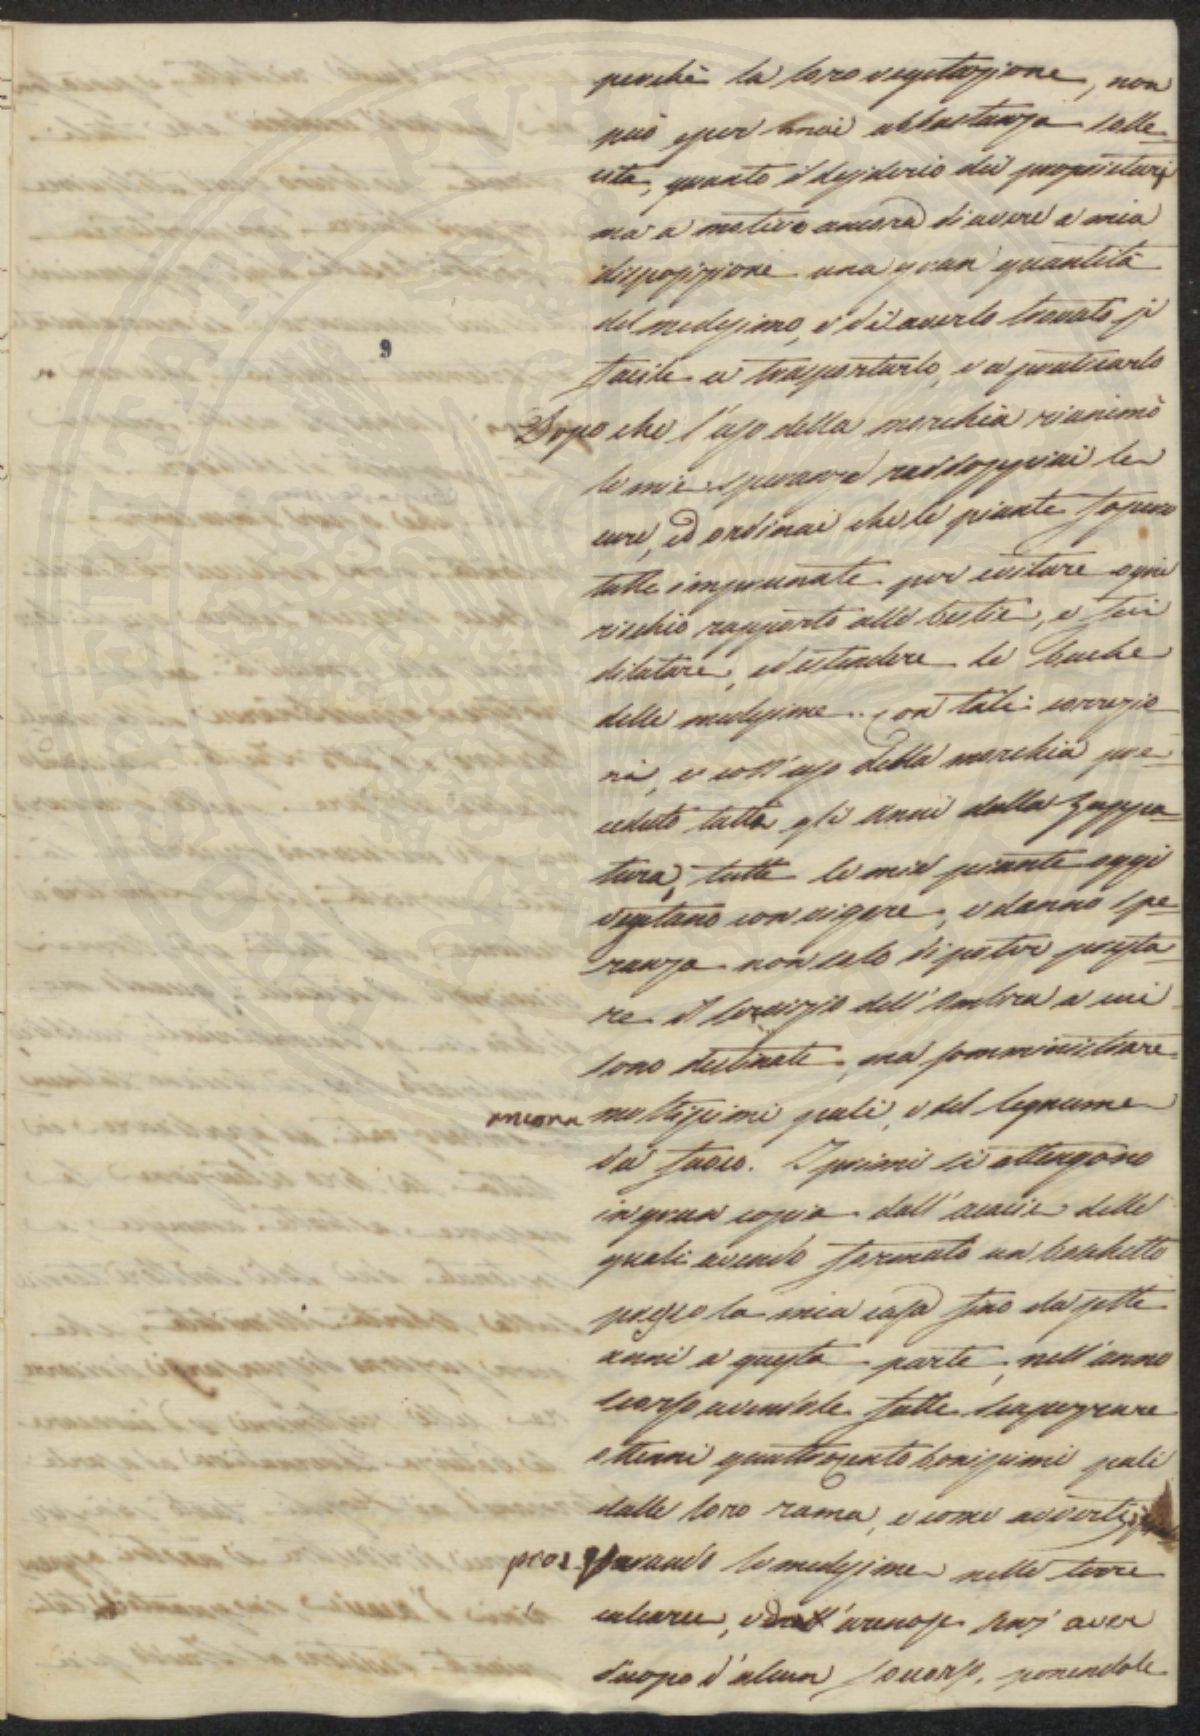 perchè la loro vegetazione, non
può esser mai abbastanza solle=
cita, quanto il desiderio dei proprietarj
ma a motivo ancora di avere a mia
disposizione una gran quantità
del medesimo, e di averlo trovato sì
facile a trasportarlo, e a praticarlo
9
Dopo che l'uso della morchia rianimò
le mie speranze raddoppiai le
cure, ed ordinai che le piante fossero
tutte imprunate per evitare ogni
rischio rapporto alle bestie, e feci
dilatare, ed estendere le buche
delle medesime. Con tali correzio
ni, e coll'uso della morchia pre=
ceduto tutti gli Anni dalla Zappa=
tura, tutte le mie piante oggi
vegetano con vigore, e danno spe=
ranza non solo di poter presta=
re il servizio dell'ombra a cui
sono destinate, ma somministrare
ancora moltissimi pali, e del legname
da fuoco. I primi si ottengono
in gran copia dall'acacie delle
quali avendo formato un boschetto
presso la mia casa fino da sette
anni a questa parte, nell'anno
scorso avendole fatte scapezzare
ottenni quattrocento bonissimi pali
dalle loro rama, e come avvertii
prosperando le medesime nelle terre
calcaree, e dell'arenose senz'aver
d'uopo d'alcun soccorso, ponendole